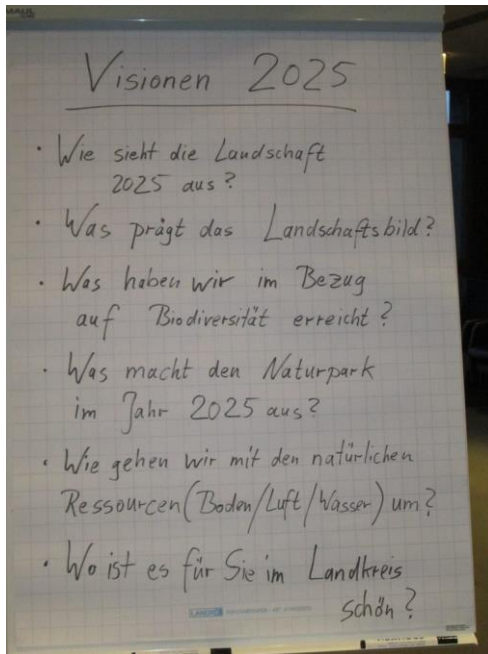 Visionen 2025
• Wie sieht die Landschaft
2025 aus?
• Was prägt das Landschaftsbild?
• Was haben wir im Bezug
auf Biodiversität erreicht?
• Was macht den Naturpark
im Jahr 2025 aus?
• Wie gehen wir mit den natürlichen
Ressourcen (Boden/Luft/Wasser) um?
• Wo ist es für Sie im Landkreis
schön?